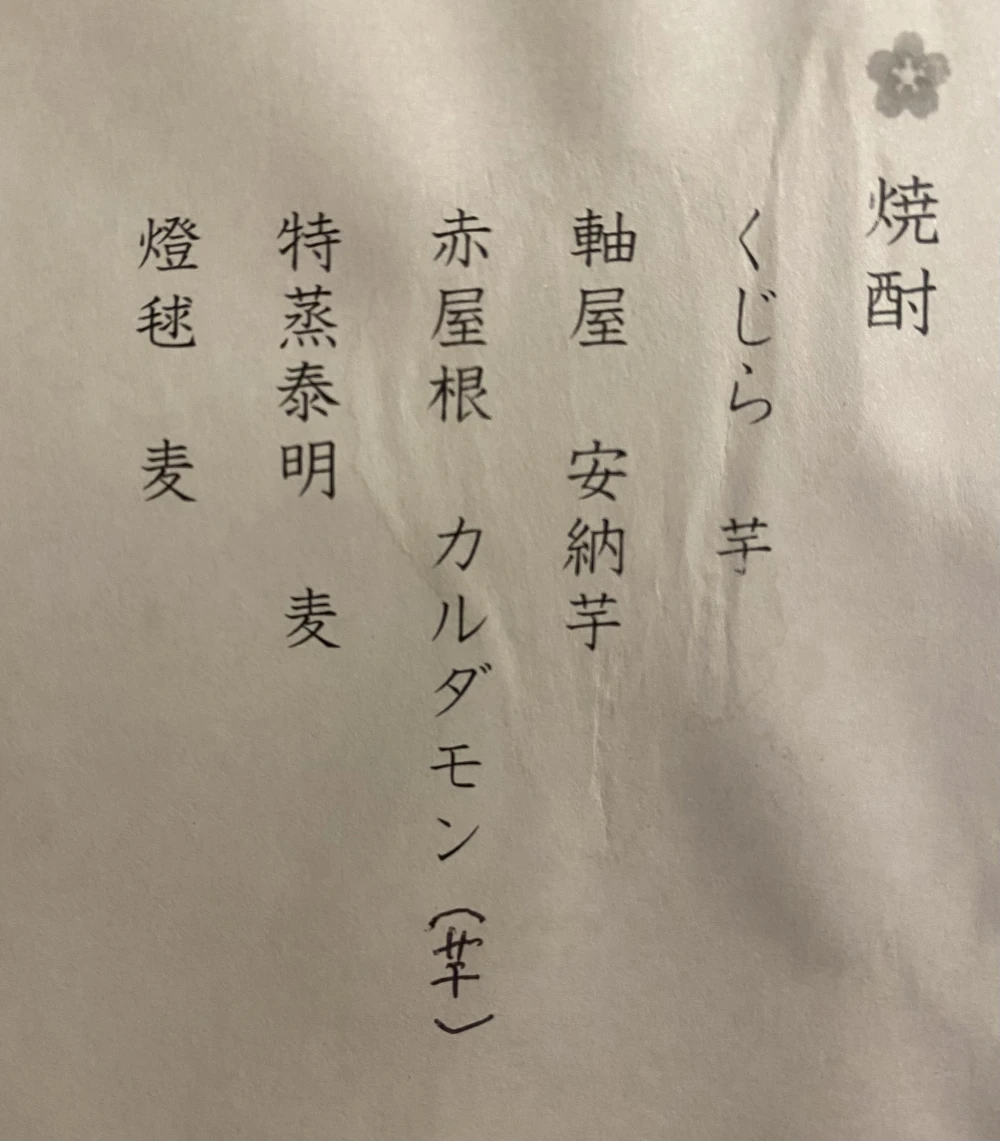 焼酎
くじら 芋
軸屋 安納芋
赤屋根 カルダモン（芋）
特蒸泰明 麦
燈毬 麦